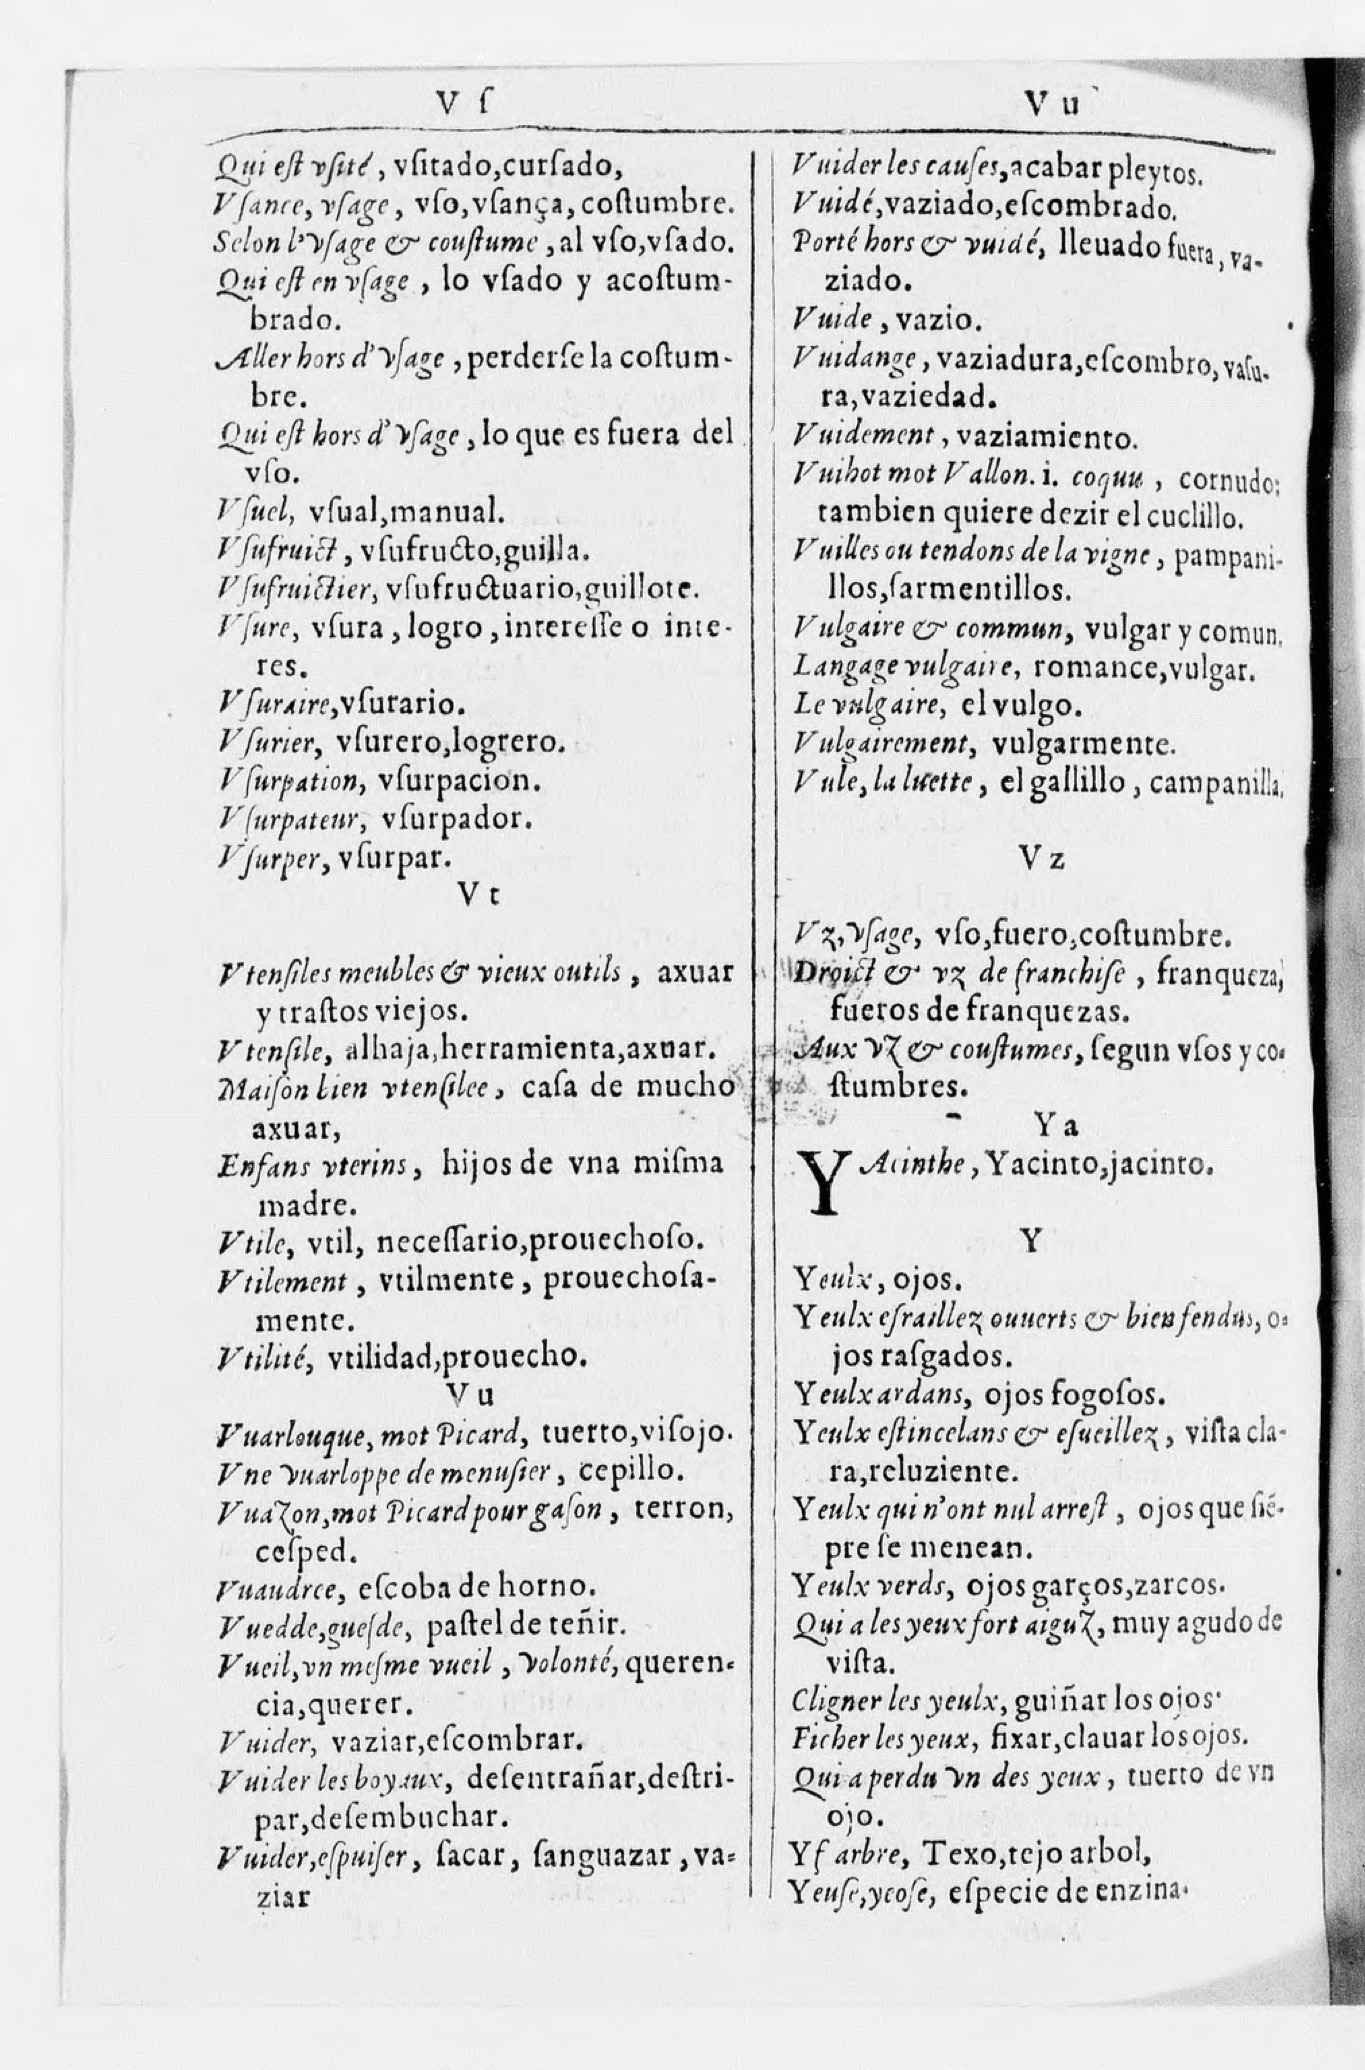 V ſ
Qui eſt vſité, vſitado, curſado,
Vſance, vſage, vſo, vſança, coſtumbre.
Selon l'vſage & couſtume, al vſo, vſado.
Qui eſt en vſage, lo vſado y acoſtum-
brado.
Aller hors d'vſage, perderſe la coſtum-
bre.
Qui eſt hors d'vſage, lo que es fuera del
vſo.
Vſuel, vſual, manual.
Vſufruict, vſufructo, guilla.
Vſufruictier, vſufructuario, guillote.
Vſure, vſura, logro, intereſſe o inte-
res.
Vſuraire, vſurario.
Vſurier, vſurero, logrero.
Vſurpation, vſurpacion.
Vſurpateur, vſurpador.
Vſurper, vſurpar.
V t
Vtenſiles meubles & vieux outils, axuar
y traſtos viejos.
Vtenſile, alhaja, herramienta, axuar.
Maiſon bien vtenſilee, caſa de mucho
axuar,
Enfans vterins, hijos de vna miſma
madre.
Vtile, vtil, neceſſario, prouechoſo.
Vtilement, vtilmente, prouechoſa-
mente.
Vtilité, vtilidad, prouecho.
V u
Vuarlouque, mot Picard, tuerto, viſojo.
Vne vuarloppe de menuſier, cepillo.
Vuazon, mot Picard pour gaſon, terron,
ceſped.
Vuaudree, eſcoba de horno.
Vuedde, gueſde, paſtel de teñir.
Vueil, vn meſme vueil, volonté, queren-
cia, querer.
Vuider, vaziar, eſcombrar.
Vuider les boyaux, deſentrañar, deſtri-
par, deſembuchar.
Vuider, eſpuiſer, ſacar, ſanguazar, va-
ziar
V u
Vuider les cauſes, acabar pleytos.
Vuidé, vaziado, eſcombrado.
Porté hors & vuidé, lleuado fuera, va-
ziado.
Vuide, vazio.
Vuidange, vaziadura, eſcombro, vaſu-
ra, vaziedad.
Vuidement, vaziamiento.
Vuihot mot Vallon. i. coquu, cornudo:
tambien quiere dezir el cuclillo.
Vuilles ou tendons de la vigne, pampani-
llos, ſarmentillos.
Vulgaire & commun, vulgar y comun.
Langage vulgaire, romance, vulgar.
Le vulgaire, el vulgo.
Vulgairement, vulgarmente.
Vule, la luette, el gallillo, campanilla.
V z
Vz, vſage, vſo, fuero, coſtumbre.
Droict & vz de franchiſe, franqueza,
fueros de franquezas.
Aux vz & couſtumes, ſegun vſos y co-
ſtumbres.
Y a
YAcinthe, Yacinto, jacinto.
Y
Yeulx, ojos.
Yeulx eſraillez ouuerts & bien fendus, o-
jos raſgados.
Yeulx ardans, ojos fogoſos.
Yeulx eſtincelans & eſueillez, viſta cla-
ra, reluziente.
Yeulx qui n'ont nul arreſt, ojos que ſié-
pre ſe menean.
Yeulx verds, ojos garços, zarcos.
Qui a les yeux fort aiguz, muy agudo de
viſta.
Cligner les yeulx, guiñar los ojos.
Ficher les yeux, fixar, clauar los ojos.
Qui a perdu vn des yeux, tuerto de vn
ojo.
Yf arbre, Texo, tejo arbol,
Yeuſe, yeoſe, eſpecie de enzina.